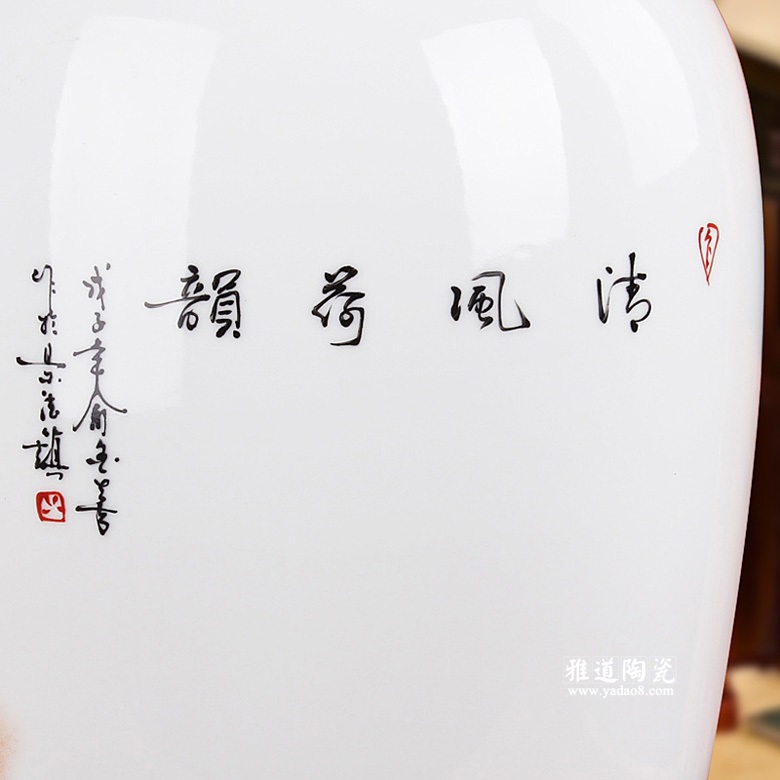 清風荷韻
戊子年俞金喜
作於景德鎮
雅道陶瓷
www.yadao8.com